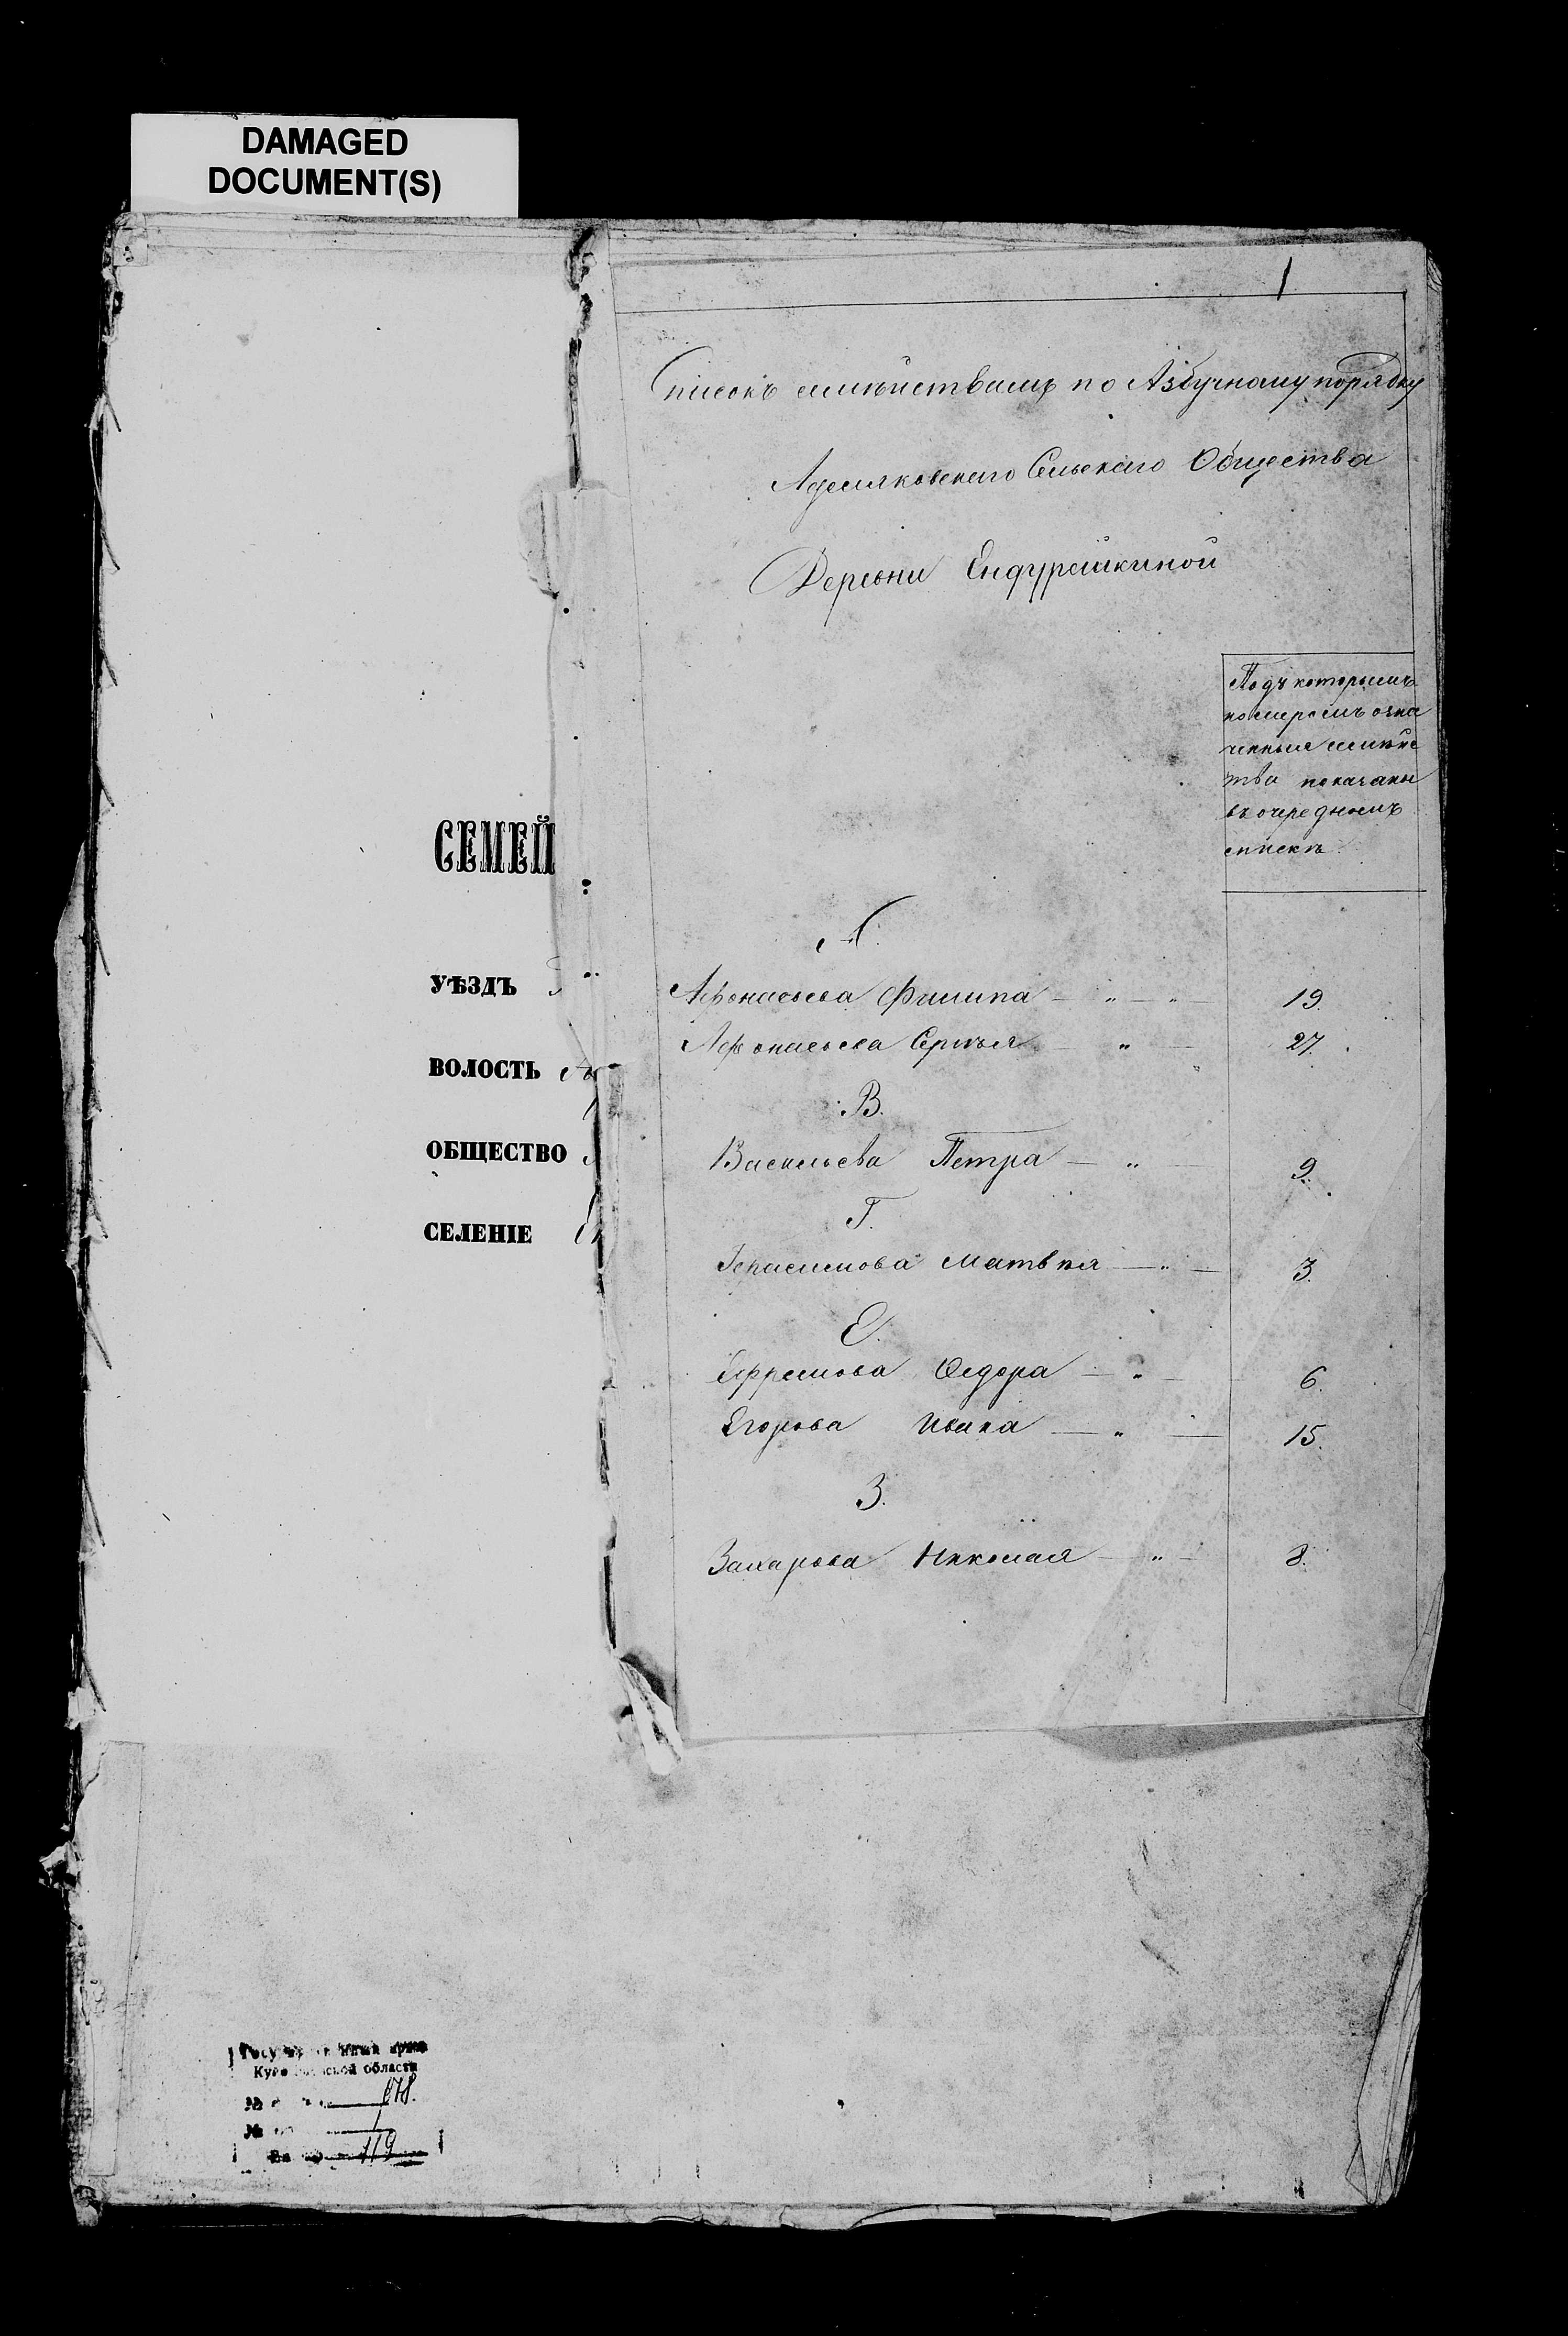 DAMAGED
DOCUMENT(S)
1
Списокъ семѣйствамъ по Азбучному порядку
Аделяковскаго Сельскаго Общества
Деревни Ендурайкиной
Подъ которымъ
номеромъ озна
ченныя семѣйс
тва показаны
въ очередномъ
спискѣ.
СЕМЕЙ
УѢЗДЪ
ВОЛОСТЬ
ОБЩЕСТВО
СЕЛЕНІЕ
А.
Афонасьева Филипа — " — " — 19.
Афонасьева Сергѣя — " — 27.
В.
Васильева Петра — " — 9.
Г.
Герасимова Матвѣя — " — 3.
Е.
Ефремова Ѳедора — " — 6.
Егорова Ивана — " — 15.
З.
Захарова Николая — " — 8.
области
№ 678.
№ 1
119